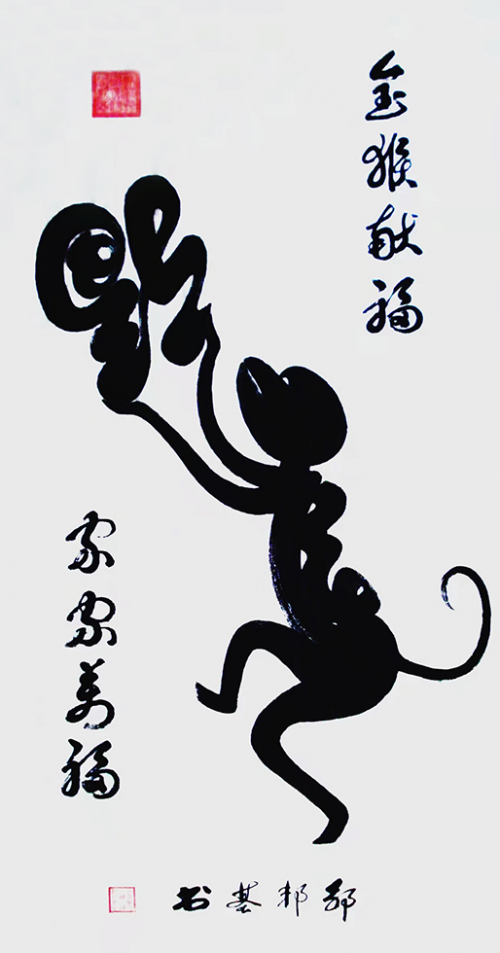 金猴献福
家家萬福
邹邦基书